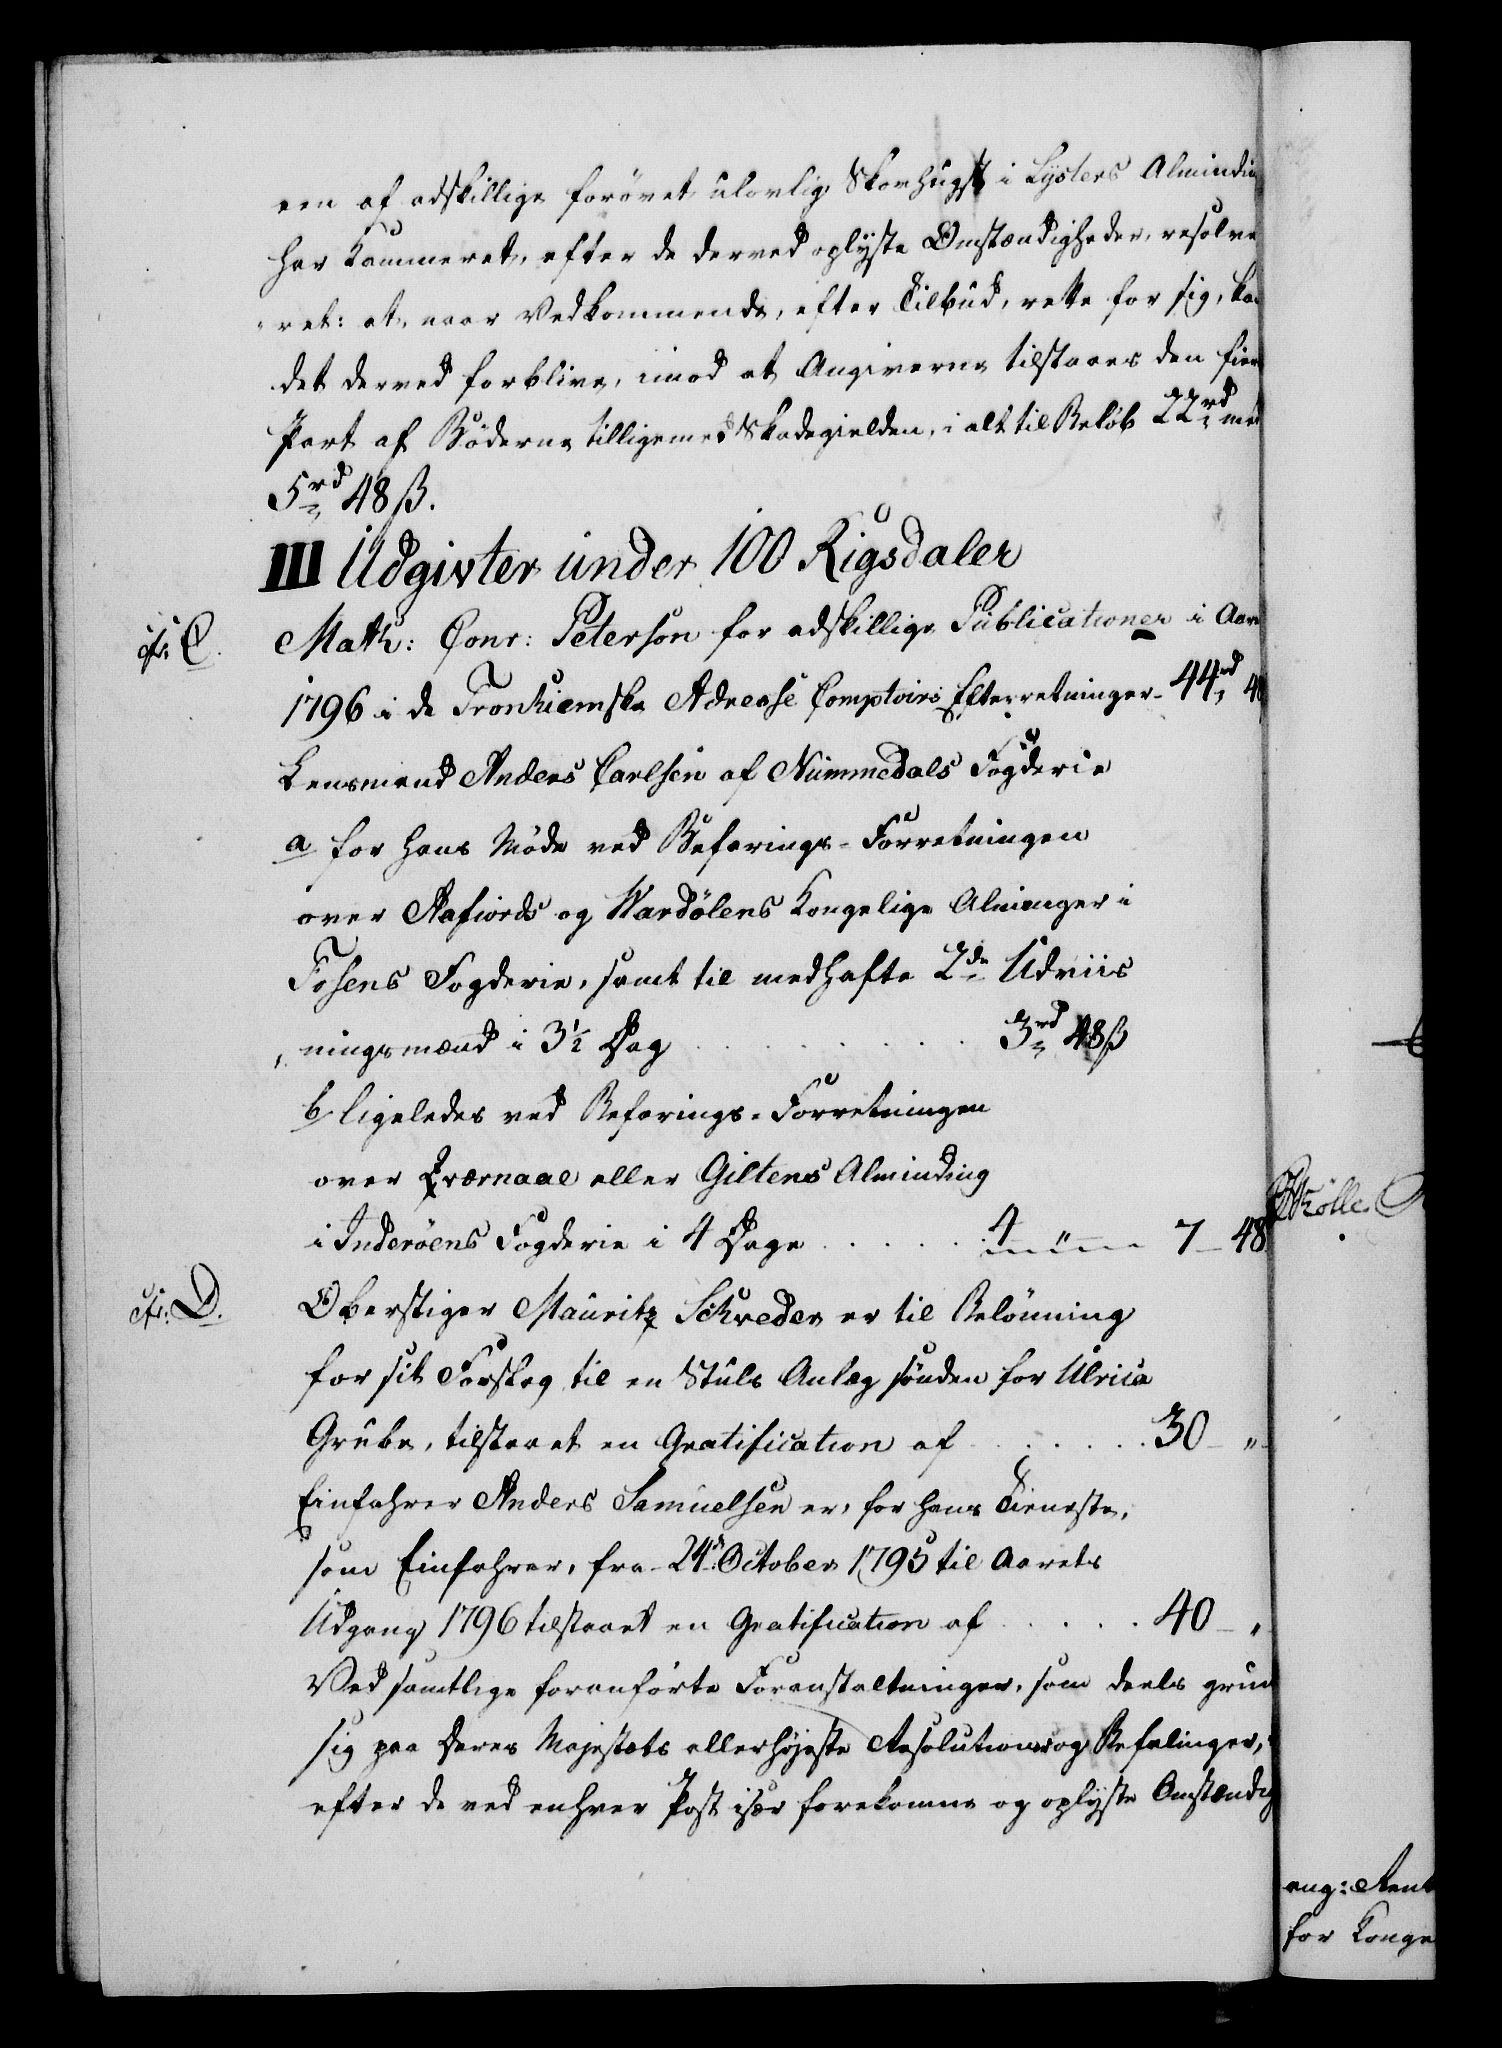 een af adskillige forövet ulovlig Skovhugst i Lÿsters Almindin
har Kammeret, efter de derved oplÿste Omstændigheder, resolve
ret: at, naar Vedkommende, efter Tilbud, rette for sig, kan
det derved forblive, imod at Angiverne tilstaaes den fier
Part af Böderne tilligemed Skadegielden, i alt til Belöb 22 rd med
5 rd 48 ß.
III Udgivter under 100 Rigsdaler
cfr. C. Math: Conr: Peterson for adskillige Publicationer i Aaret
1796 i de Tronhiemske Adresse Comptoirs Efterretninger - 44 rd 4
Lensmand Anders Carlsen af Nummedals Fogderie
a for hans Möde ved Befarings-Forretningen
over Aafiords og Wardölens Kongelige Alminger i
Fosens Fogderie, samt til medhafte 2de Udviis
ningsmænd i 3½ Dag . . . . . . . . 3 rd 48 ß
b ligeledes ved Befarings-Forretningen
over Qværnaae eller Giltens Alminding
i Inderöens Fogderie i 4 Dage . . . . . 4 - " - 7 - 48
cfr. D. Oberstiger Mauritz Schreder er til Belönning
for sit Forslag til en Stuls Anlæg sönden for Ulrica
Grube, tilstaaet en Gratification af . . . . . . 30 - "
Einfahrer Anders Samuelsen er, for hans Tieneste,
som Einfahrer, fra 24de October 1795 til Aarets
Udgang 1796 tilstaaet en Gratification af . . . . . 40 - "
Ved samtlige foranförte Foranstaltninger, som deels grun
sig paa Deres Majestæts allerhöjeste Resolutioner og Befalinger,
efter de ved enhver Post især forekomne og oplÿste Omstændig
ang: Rent
for Konge